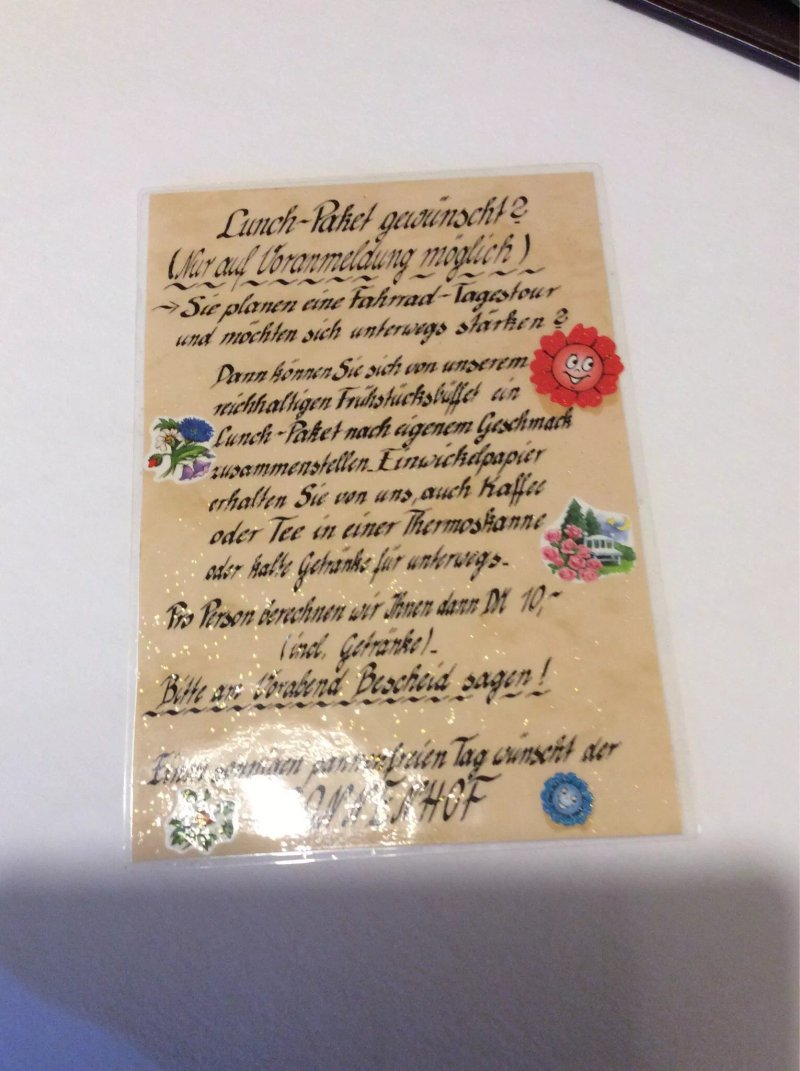 Lunch-Paket gewünscht?
(Nur auf Voranmeldung möglich)
→ Sie planen eine Fahrrad-Tagestour
und möchten sich unterwegs stärken?
Dann können Sie sich von unserem
reichhaltigen Frühstücksbüffet ein
Lunch-Paket nach eigenem Geschmack
zusammenstellen. Einwickelpapier
erhalten Sie von uns, auch Kaffee
oder Tee in einer Thermoskanne
oder kalte Getränke für unterwegs.
Pro Person berechnen wir Ihnen dann DM 10,-
(incl. Getränke).
Bitte am Vorabend Bescheid sagen!
Einen sonnigen pannenfreien Tag wünscht der